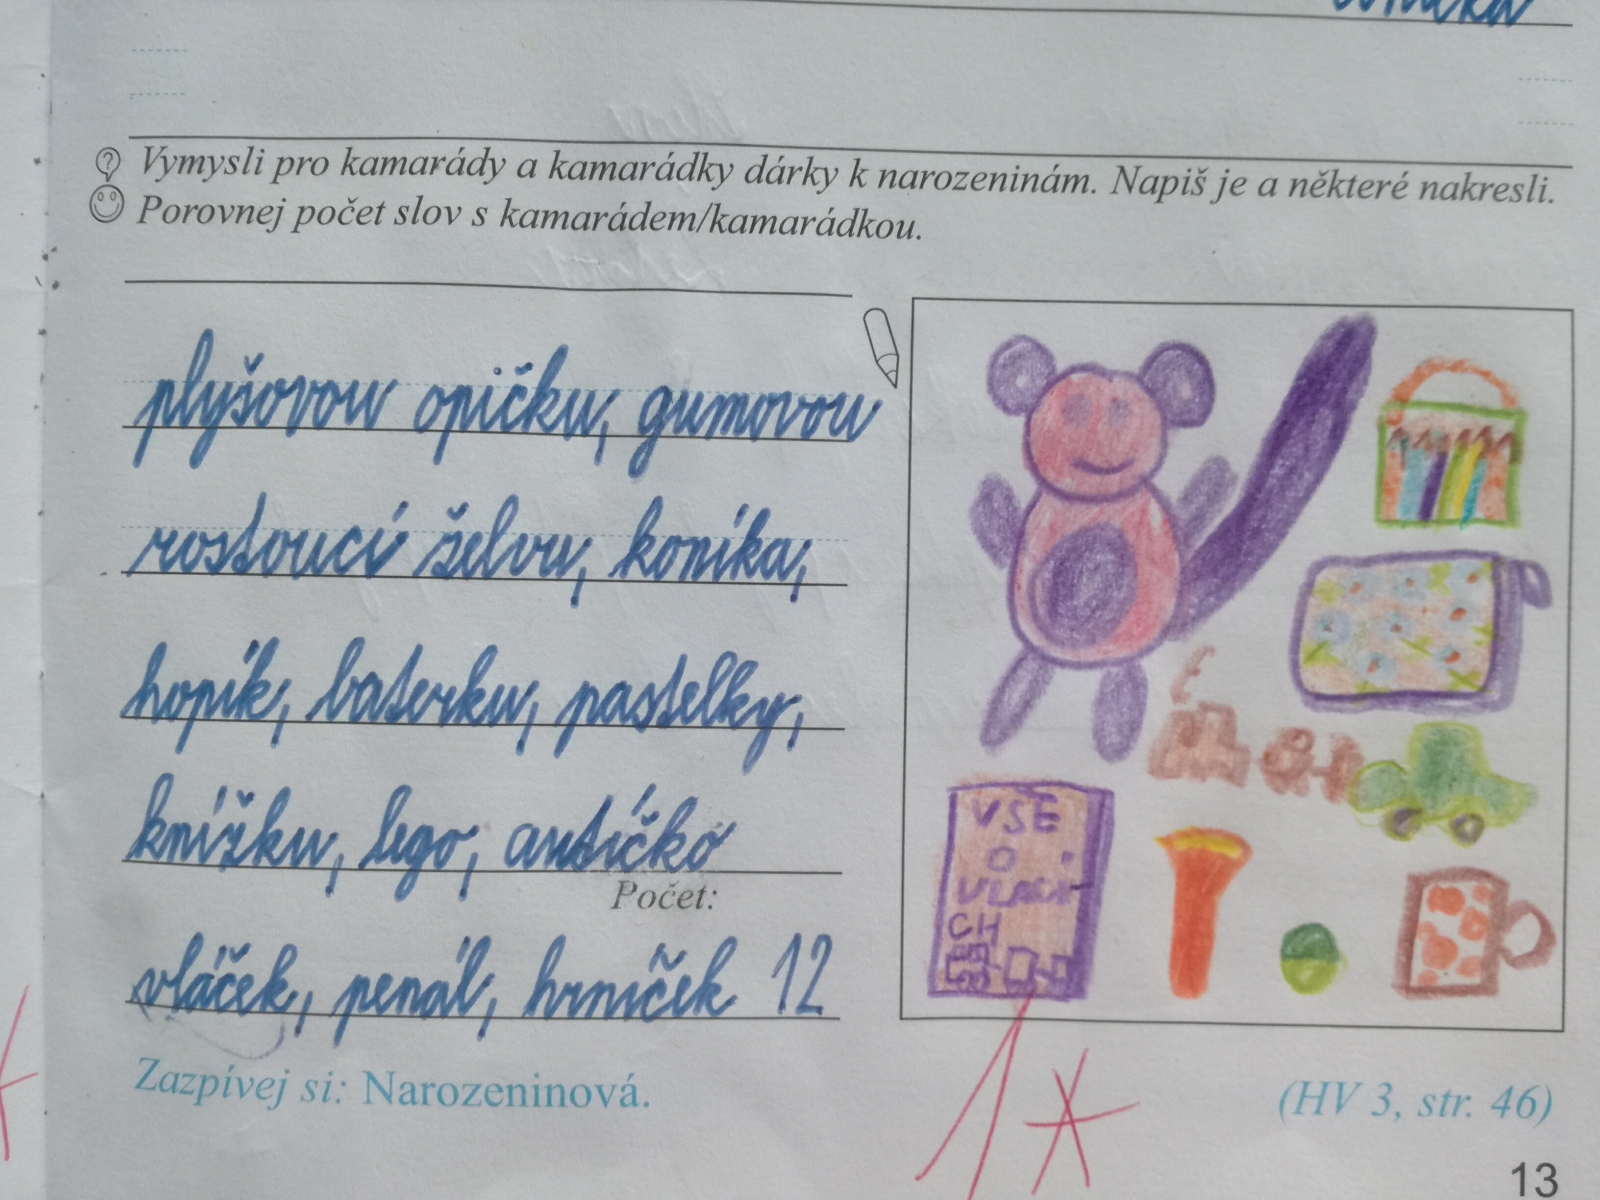 Vymysli pro kamarády a kamarádky dárky k narozeninám. Napiš je a některé nakresli.
Porovnej počet slov s kamarádem/kamarádkou.
plyšovou opičku, gumovou
rostoucí želvu, koníka,
hopík, baterku, pastelky,
knížku, lego, autíčko
Počet:
vláček, penál, hrníček 12
VŠE
O
VLACÍ
CH
1*
Zazpívej si: Narozeninová.
(HV 3, str. 46)
13